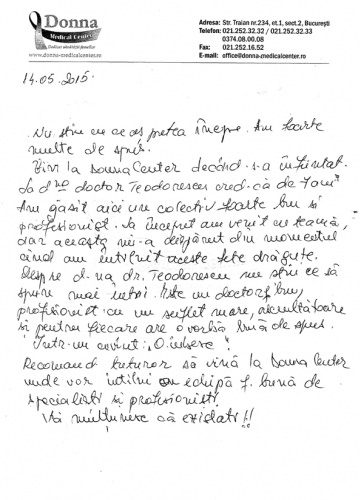 Donna
Medical Center
Dedicat sănătății femeilor
www.donna-medicalcenter.ro
Adresa: Str. Traian nr.234, et.1, sect.2, București
Telefon: 021.252.32.32 / 021.252.32.33
0374.08.00.08
Fax: 021.252.16.52
E-mail: office@donna-medicalcenter.ro
14.05.2015
Nu știu cu ce aș putea începe. Am foarte
multe de spus.
Vin la Donna Center decând s-a înființat.
La d-na doctor Teodorescu cred că de 7 ani
Am găsit aici un colectiv foarte bun și
profesionist. La început am venit cu teamă,
dar aceasta mi-a dispărut din momentul
când am întîlnit aceste fete drăguțe.
Despre d-na dr. Teodorescu nu știu ce să
spun mai întâi. Este un doctor f. bun,
profesionist cu un suflet mare, ascultătoare
și pentru fiecare are o vorbă bună de spus.
Într-un cuvînt: "O iubesc"
Recomand tuturor să vină la Donna Center
unde vor întîlni o echipă f. bună de
specialiști și profesioniști.
Vă mulțumesc că existați!!